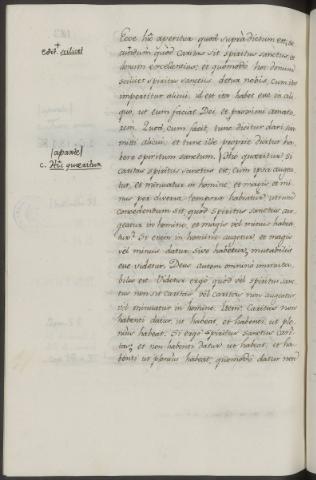 Ecce hîc aperitur quod supra dictum est,
quod caritas sit spiritus sanctus, et
donum excellentius; et quomodo hoc donum
scilicet spiritus sanctus detur nobis, cum ita
impertitur alicui, id est ita habet esse in ali
quo, ut eum faciat Dei et proximi amato
rem. Quod cum facit, tunc dicitur dari, seu
mitti alicui, et tunc ille proprie dicitur ha
bere spiritum sanctum. Hîc quæritur, si
caritas spiritus sanctus est, cum ipsa augea
tur, et minuatur in homine, et magis et mi
nus per diversa tempora habeatur, utrum
concedendum sit, quod spiritus sanctus au
geatur in homine, et magis vel minus habea
tur? Si enim in homine augetur, et magis
vel minus datur sive habetur, mutabilis
esse videtur. Deus autem omnino immuta
bilis est. Videtur ergo quod vel spiritus sanc
tus non sit caritas, vel caritas non augeatur
vel minuatur in homine. Item: Caritas non
habenti datur, ut habeat, et habenti, ut ple
nius habeat. Si ergo spiritus sanctus cari
tas, et non habenti datur ut habeat, et ha
benti ut plenius habeat, quomodo datur non
[aparte]
c. Hîc quæritur